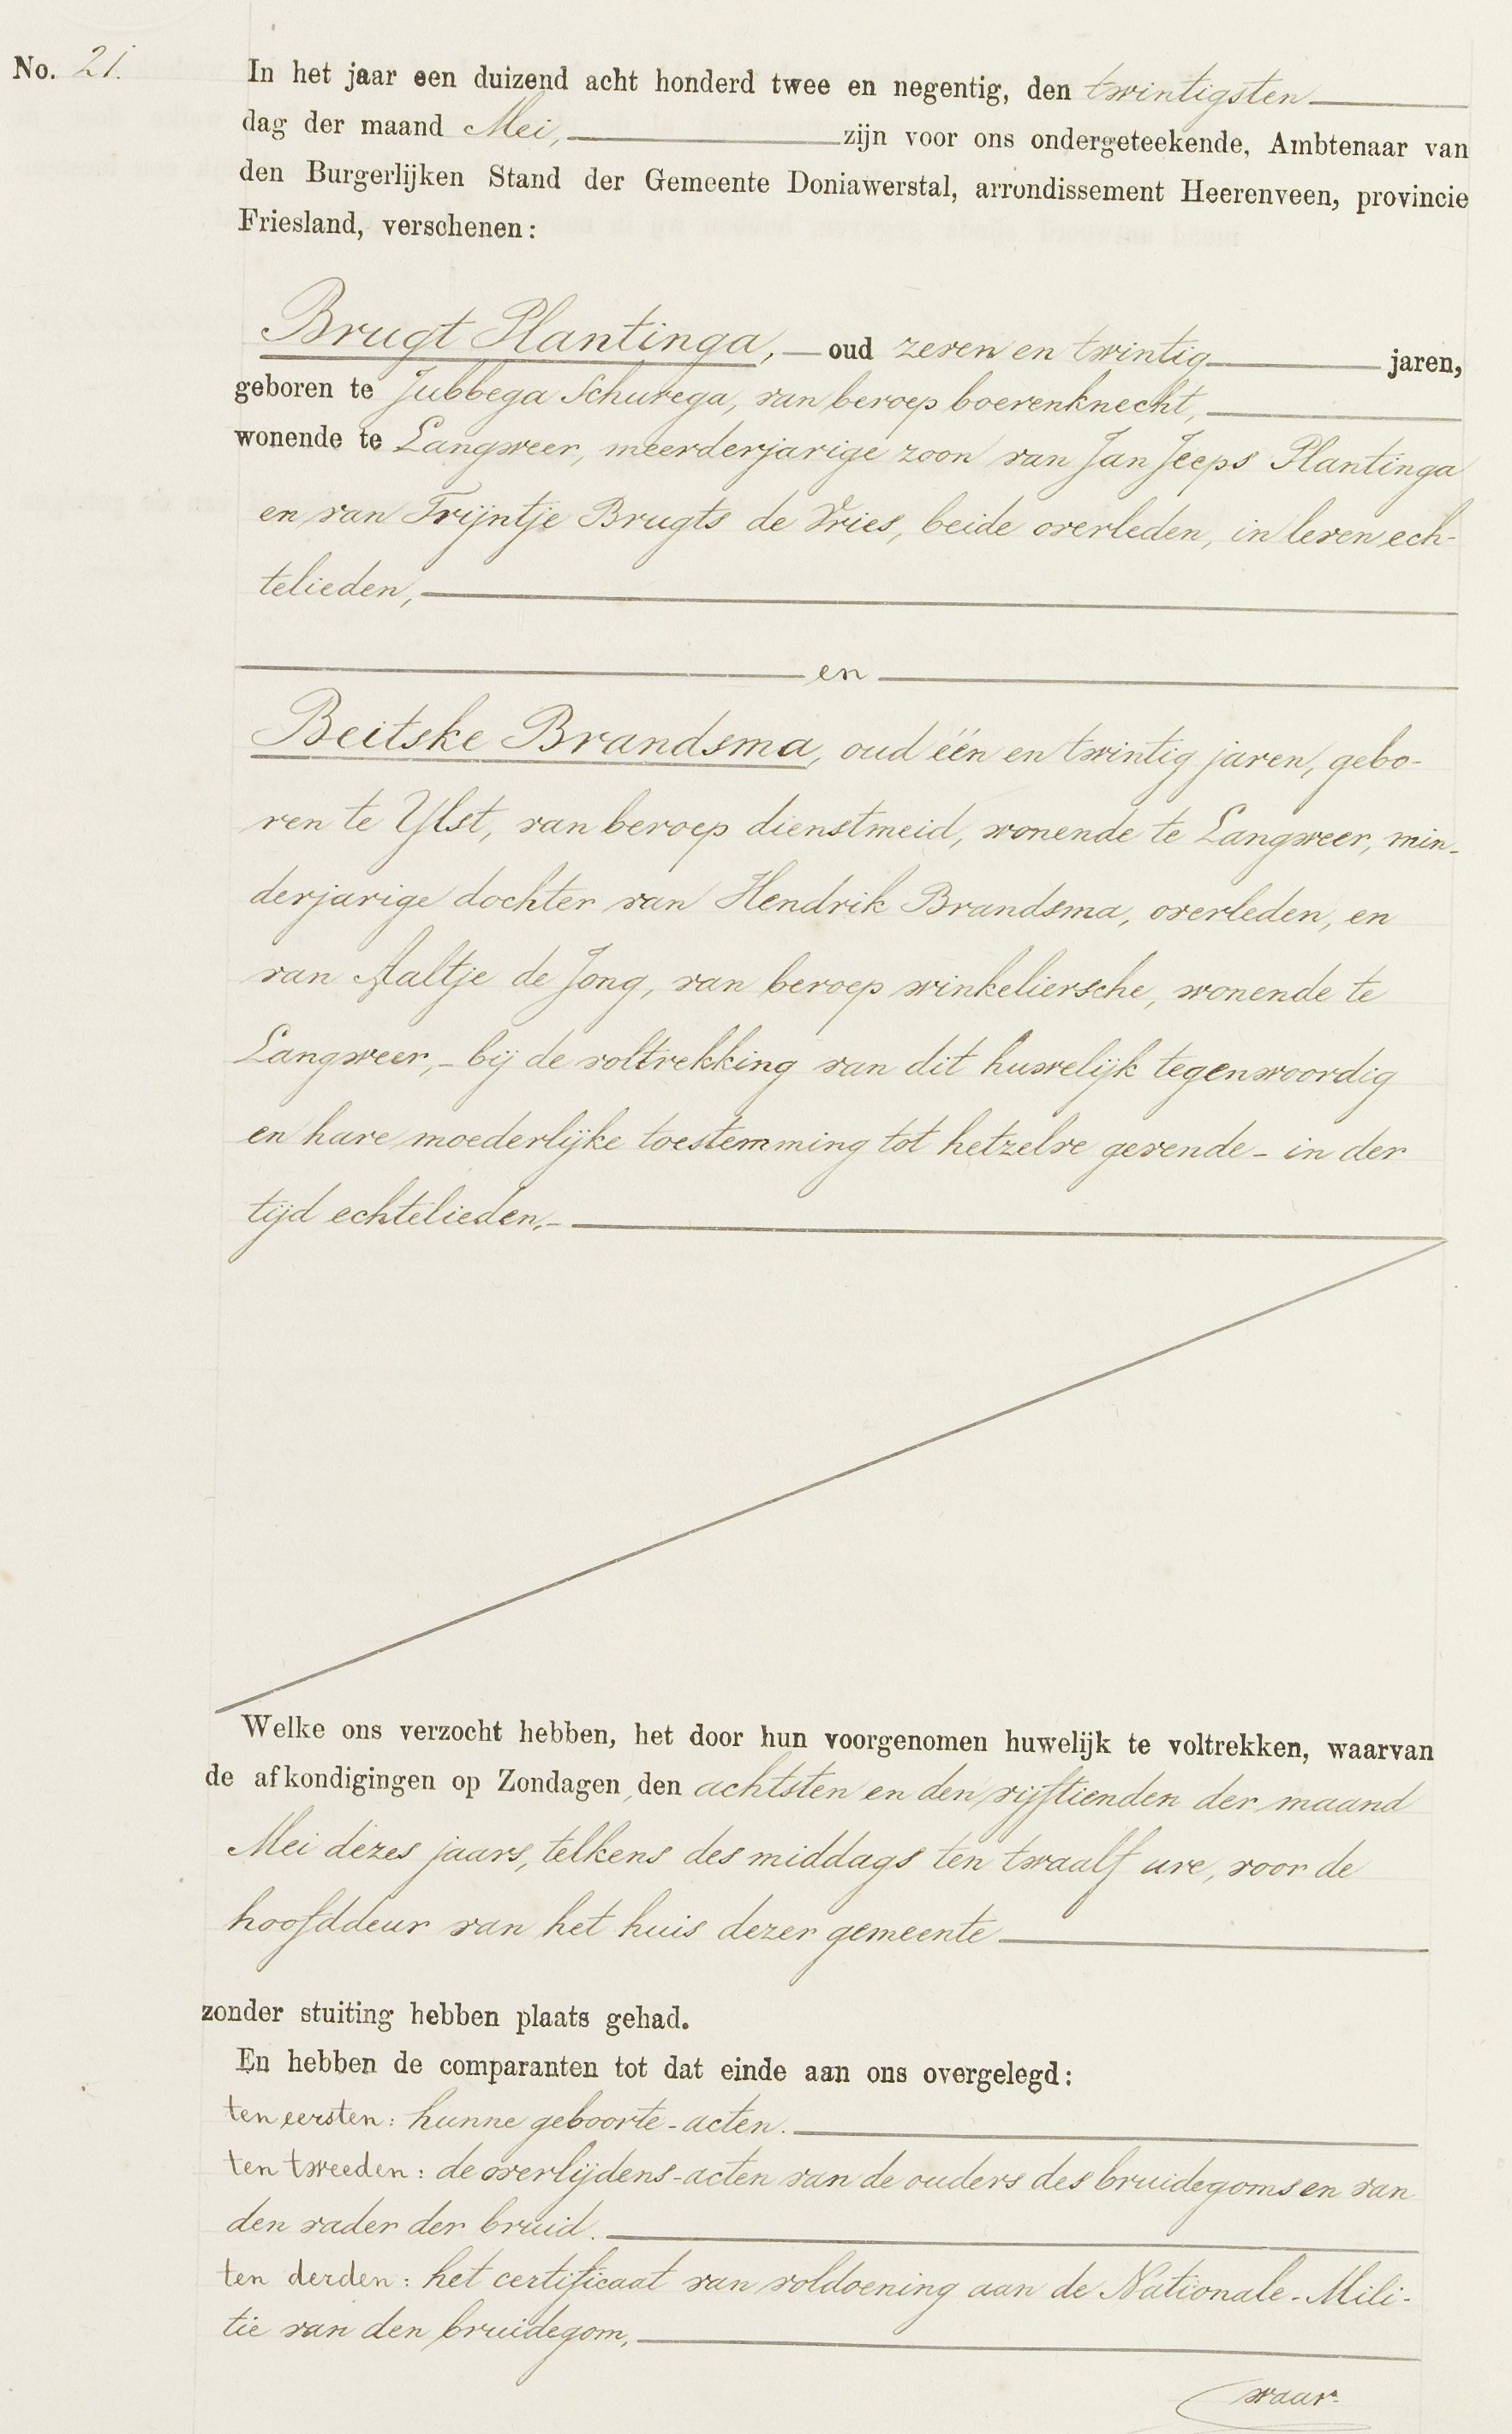 No. 21.
In het jaar een duizend acht honderd twee en negentig, den twintigsten
dag der maand Mei, zijn voor ons ondergeteekende, Ambtenaar van
den Burgerlijken Stand der Gemeente Doniawerstal, arrondissement Heerenveen, provincie
Friesland, verschenen:
Brugt Plantinga, oud zeven en twintig jaren,
geboren te Jubbega Schurega, van beroep boerenknecht,
wonende te Langweer, meerderjarige zoon van Jan Jeeps Plantinga
en van Trijntje Brugts de Vries, beide overleden, in leven ech-
telieden,
en
Beitske Brandsma, oud één en twintig jaren, gebo-
ren te IJlst, van beroep dienstmeid, wonende te Langweer, min-
derjarige dochter van Hendrik Brandsma, overleden, en
van Aaltje de Jong, van beroep winkeliersche, wonende te
Langweer, - bij de voltrekking van dit huwelijk tegenwoordig
en hare moederlijke toestemming tot hetzelve gevende - in der
tijd echtelieden, -
Welke ons verzocht hebben, het door hun voorgenomen huwelijk te voltrekken, waarvan
de afkondigingen op Zondagen, den achtsten en den vijftienden der maand
Mei dezes jaars, telkens des middags ten twaalf ure, voor de
hoofddeur van het huis dezer gemeente
zonder stuiting hebben plaats gehad.
En hebben de comparanten tot dat einde aan ons overgelegd:
ten eersten: hunne geboorte-acten.
ten tweeden: de overlijdens-acten van de ouders des bruidegoms en van
den vader der bruid.
ten derden: het certificaat van voldoening aan de Nationale-Mili-
tie van den bruidegom,
waar-